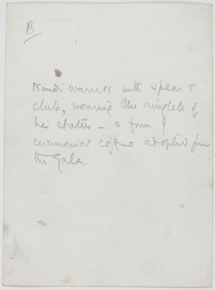 B
Nandi warrior with spear &
club, wearing the ringlets of
his status in a form of
ceremonial coiffure adopted from
the Gala.